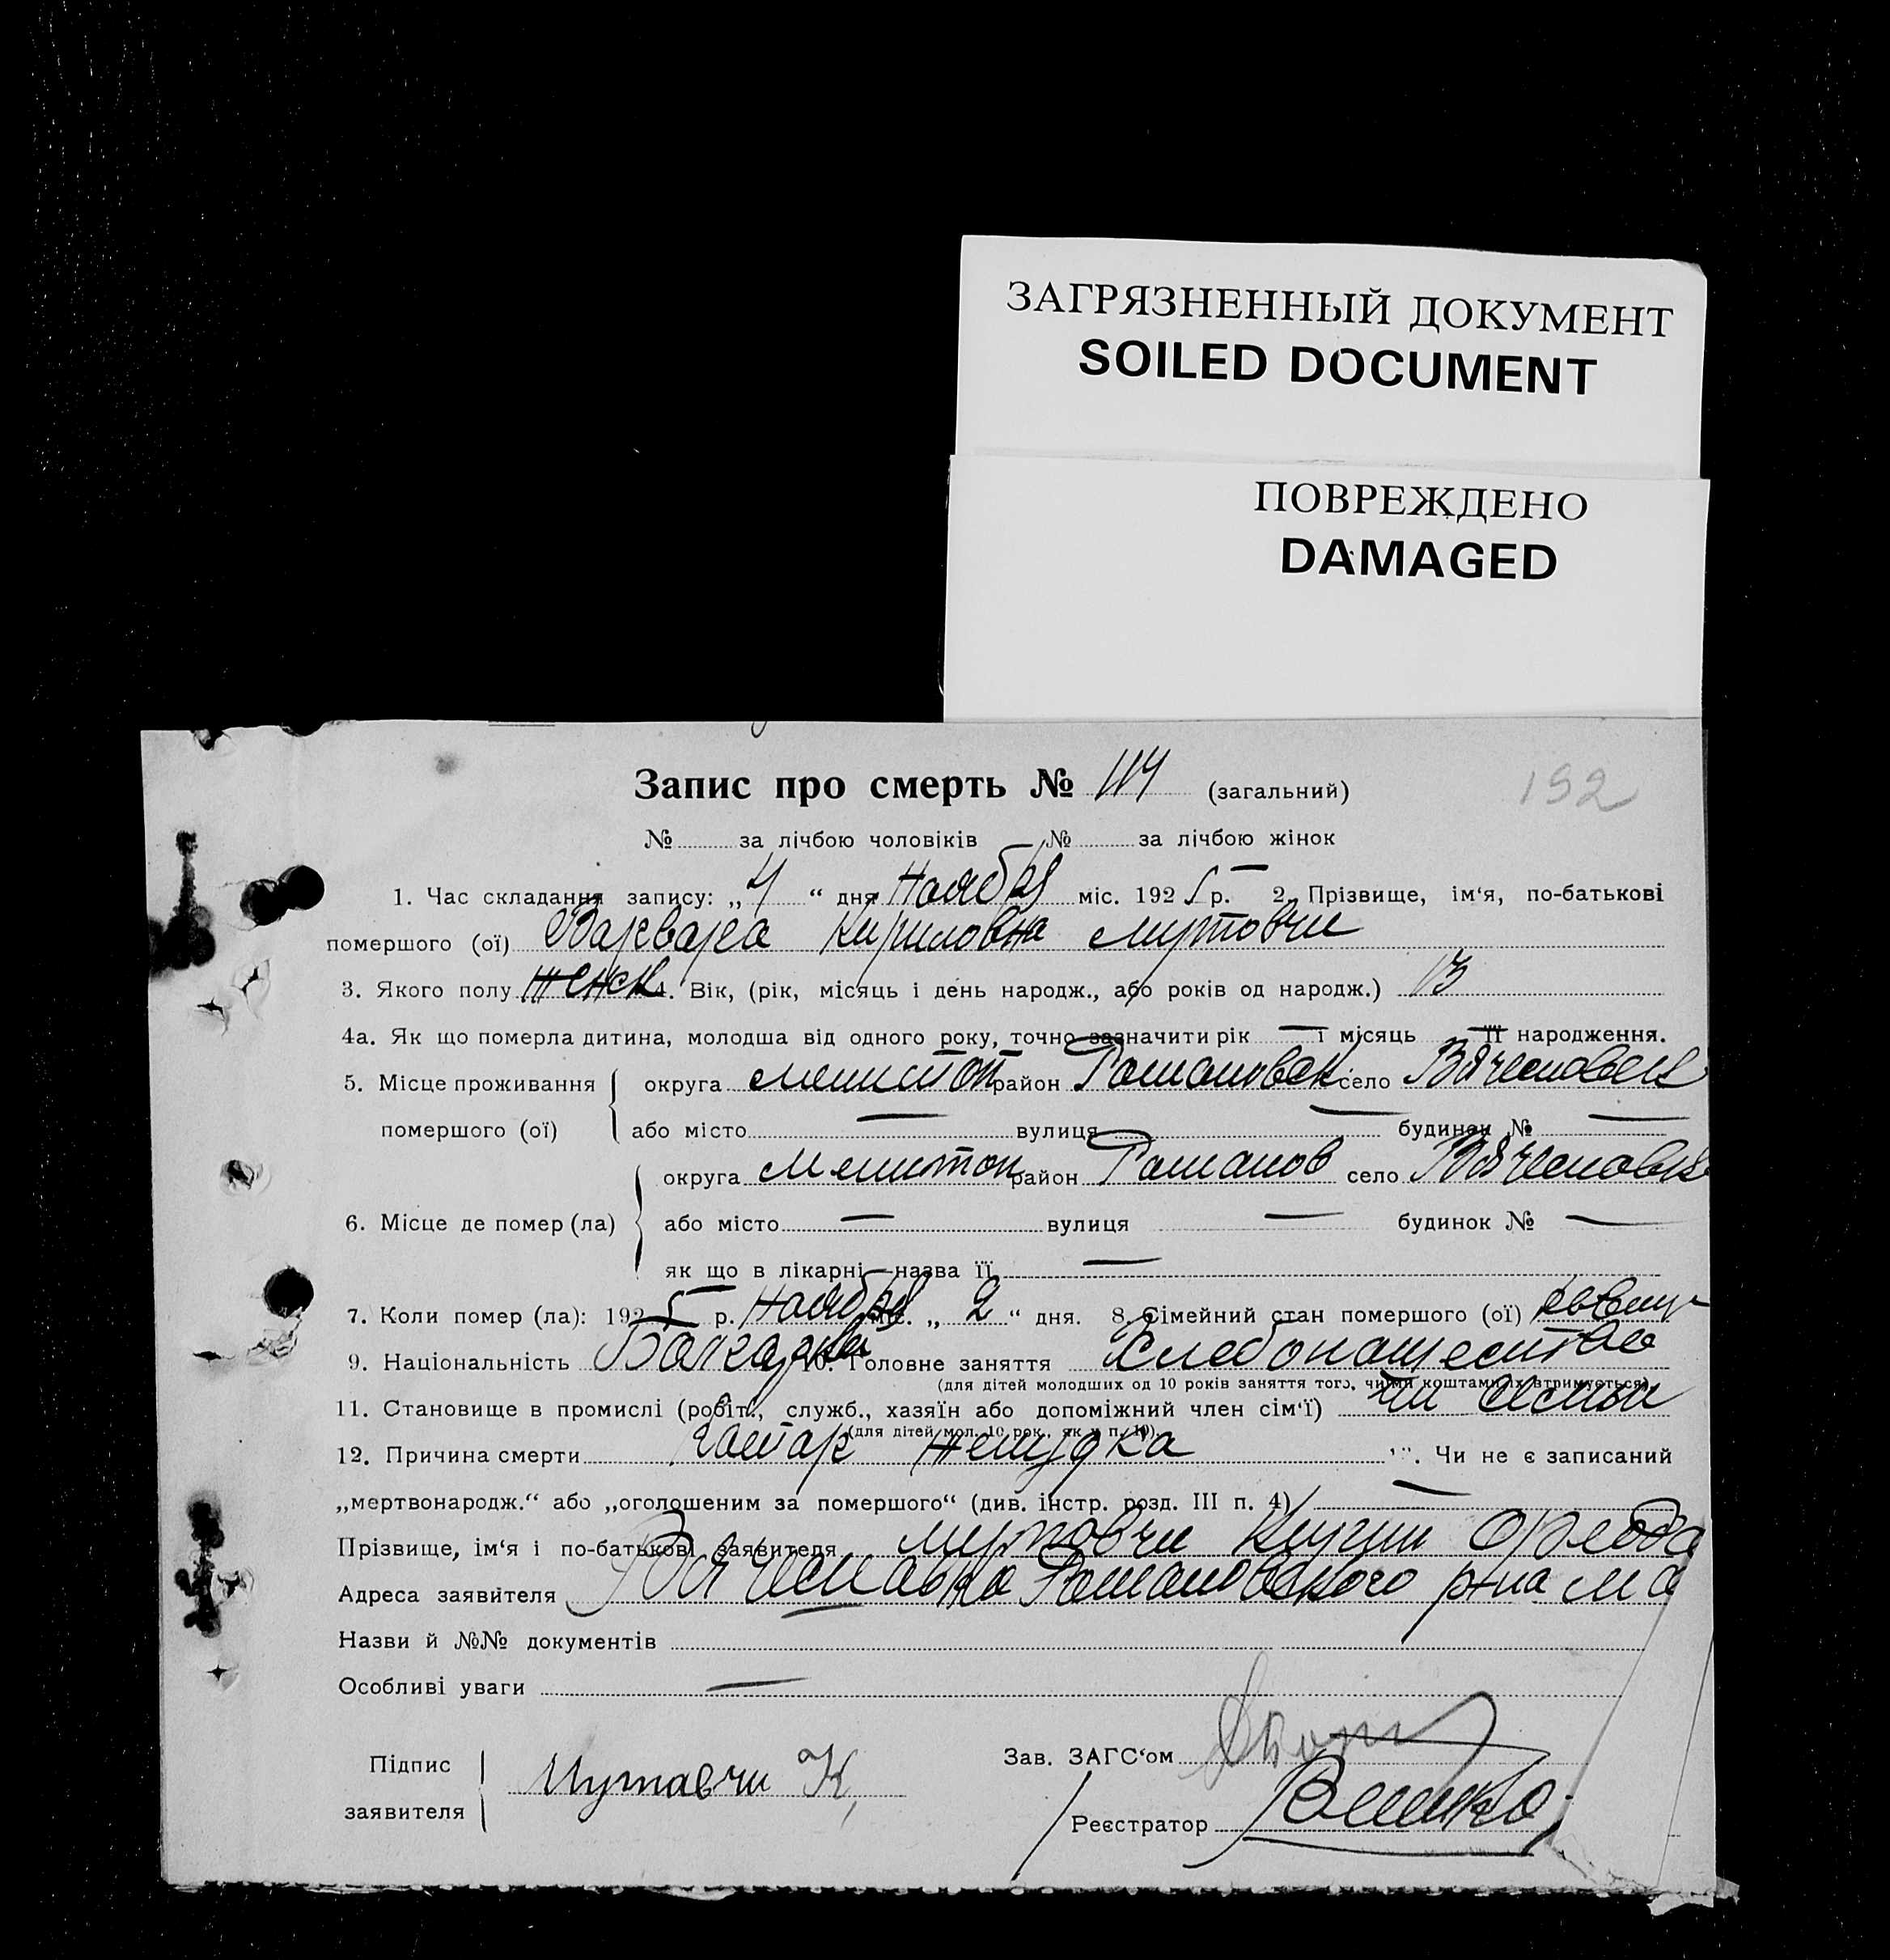 ЗАГРЯЗНЕННЫЙ ДОКУМЕНТ
SOILED DOCUMENT
ПОВРЕЖДЕНО
DAMAGED
192
Запис про смерть № 114 (загальний)
№ за лічбою чоловіків — № за лічбою жінок
1. Час складання запису: „ 4 “ дня Ноября міс. 192 5 р. — 2. Прізвище, ім‘я, по-батькові
помершого (ої) Варвара Кириловна Мутовчи
3. Якого полу женск 4. Вік, (рік, місяць і день народж., або років од народж.) 13
4а. Як що померла дитина, молодша від одного року, точно зазначити рік — і місяць — її народження.
5. Місце проживання округа Мелитоп район Романовск село Вячеславк
помершого (ої) або місто — вулиця — будинок № —
округа Мелитоп район Романов село Вячеславк
6. Місце де помер (ла) або місто — вулиця — будинок № —
як що в лікарні—назва її —
7. Коли помер (ла): 192 5 р. Ноября міс. „ 2 “ дня. 8. Сімейний стан помершого (ої)
9. Національність Болгарка 10. Головне заняття Хлебопашество
(для дітей молодших од 10 років заняття того, чиїми коштами їх втримується)
11. Становище в промислі (робіт., служб., хазяїн або допоміжний член сім‘ї) чл семьи
(для дітей мол. 10 рок., як у п. 10).
12. Причина смерти Катар желудка . Чи не є записаний
„мертвонародж.“ або „оголошеним за помершого“ (див. інстр. розд. III п. 4) —
Прізвище, ім‘я і по-батькові заявителя Мутовчи
Адреса заявителя Вячеславка Романовского р-на М
Назви й №№ документів
Особливі уваги —
Підпис заявителя Мутавчи К,
Зав. ЗАГС‘ом
Реєстратор